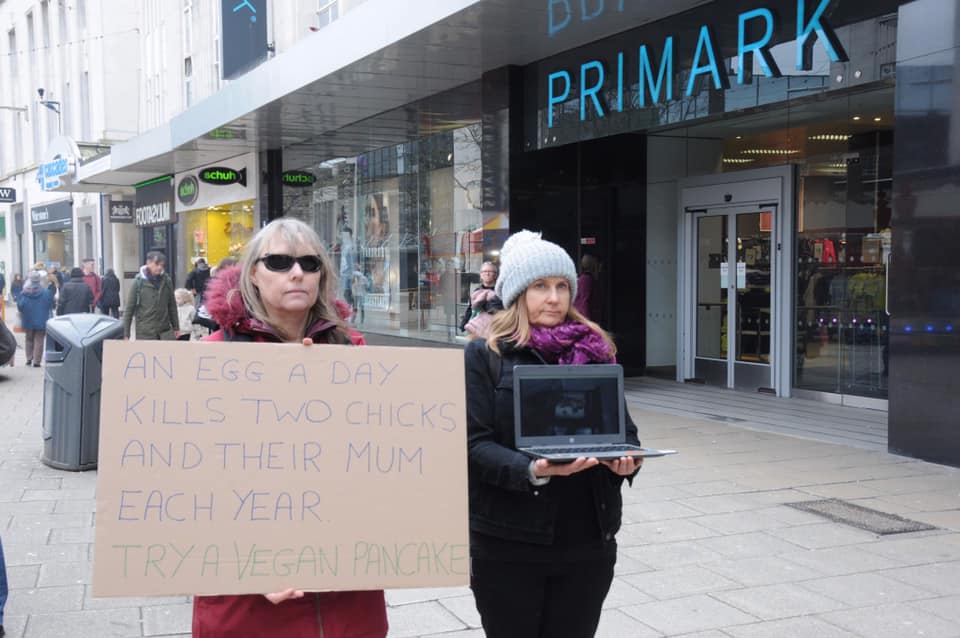 PRIMARK
schuh
schuh
schuh
FOOTASYLUM
AN EGG A DAY
KILLS TWO CHICKS
AND THEIR MUM
EACH YEAR.
TRY A VEGAN PANCAKE